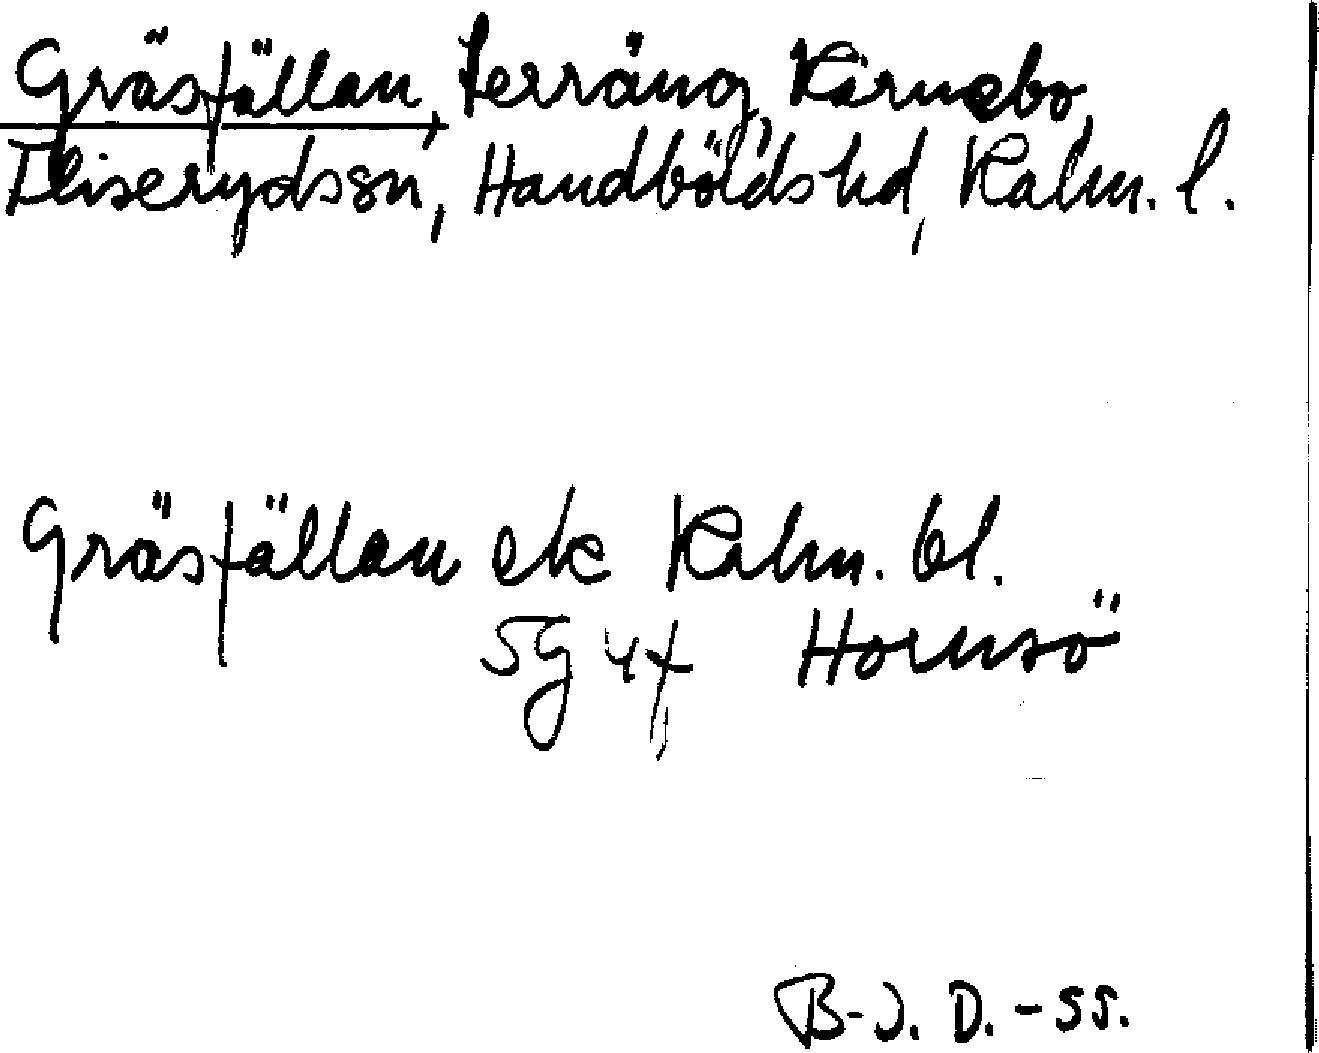 Gräsfällan, terräng, Kärnebo,
Fliserydssn, Handbölds hd, Kalm. l.
Gräsfällan ek Kalm. bl.
5g 4f Hornsö
B-J. D. - 55.